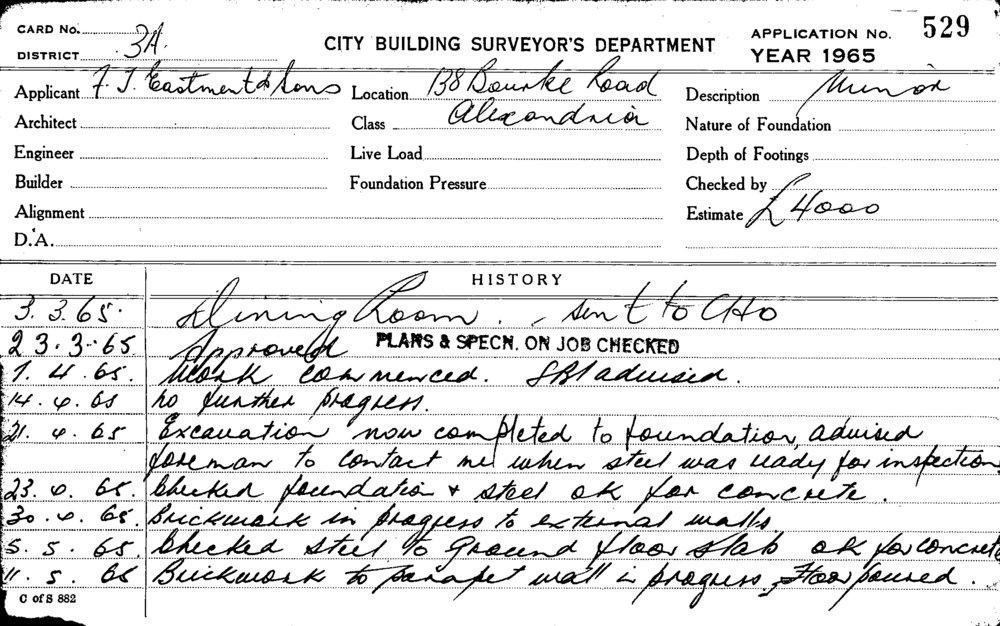 CARD No.
DISTRICT 3A.
CITY BUILDING SURVEYOR'S DEPARTMENT
APPLICATION No. 529
YEAR 1965
Applicant F. J. Eastment & Sons
Location 138 Bourke Road
Description Minor
Architect
Class Alexandria
Nature of Foundation
Engineer
Live Load
Depth of Footings
Builder
Foundation Pressure
Checked by
Alignment
Estimate £4000
D.A.
DATE HISTORY
3. 3. 65. Dining Room. - sent to CHO
23. 3. 65 Approved PLANS & SPECN. ON JOB CHECKED
1. 4. 65. Work commenced. SBI advised.
14. 4. 65 no further progress.
21. 4. 65 Excavation now completed to foundation, advised
foreman to contact me when steel was ready for inspection
23. 4. 65. Checked foundation & steel ok for concrete.
30. 4. 65. Brickwork in progress to external walls.
5. 5. 65. Checked steel to Ground floor slab ok for concrete
11. 5. 65 Brickwork to parapet wall in progress, Floor poured.
C of S 882